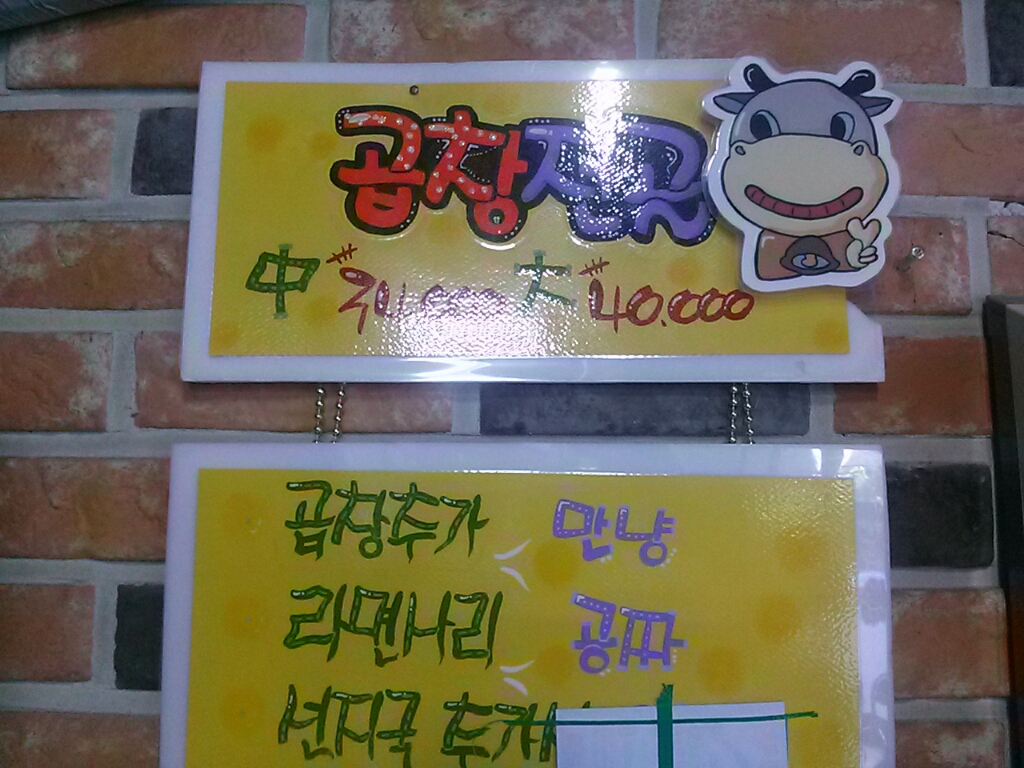 곱창전골
中 ₩34.000 大 ₩40.000
곱창추가 만냥
라면사리 공짜
선지국 추가